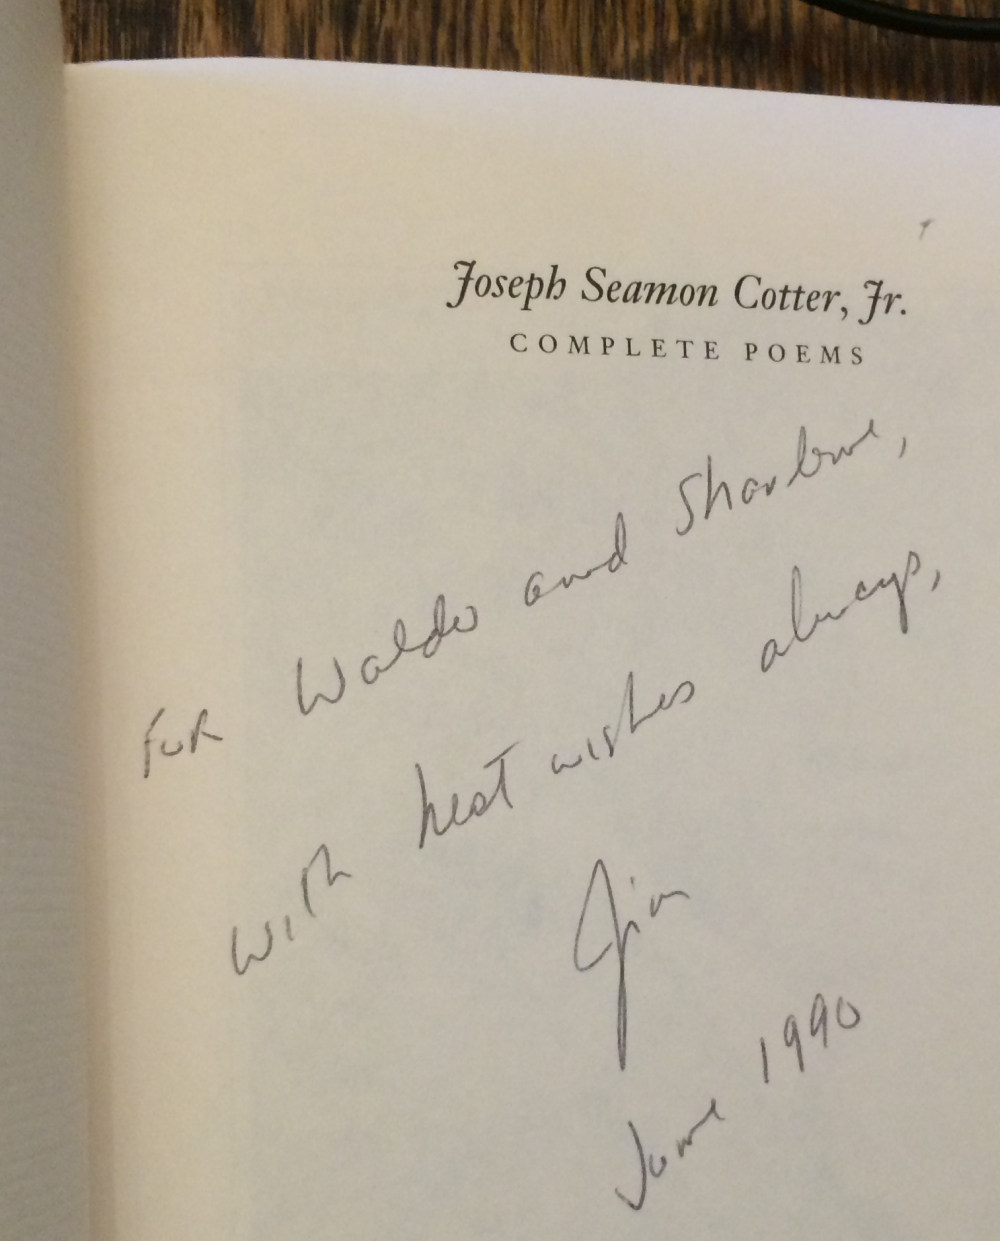 Joseph Seamon Cotter, Jr.
COMPLETE POEMS
FOR Waldo and Sharlene,
With best wishes always,
Jim
June 1990